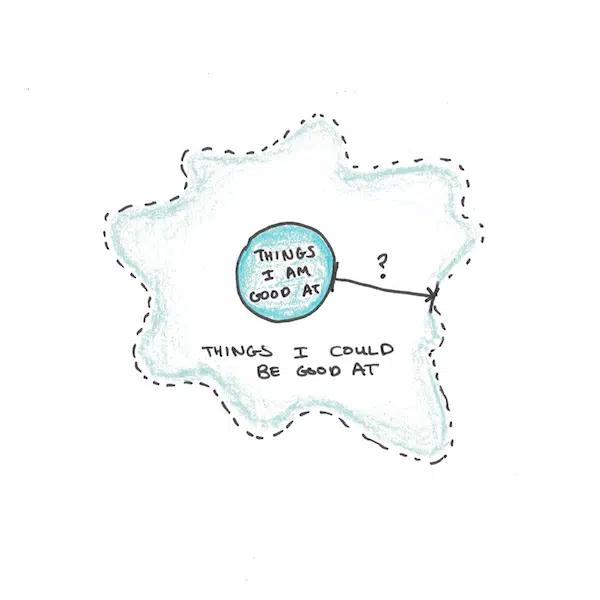 THINGS
I AM
GOOD AT
?
THINGS I COULD
BE GOOD AT